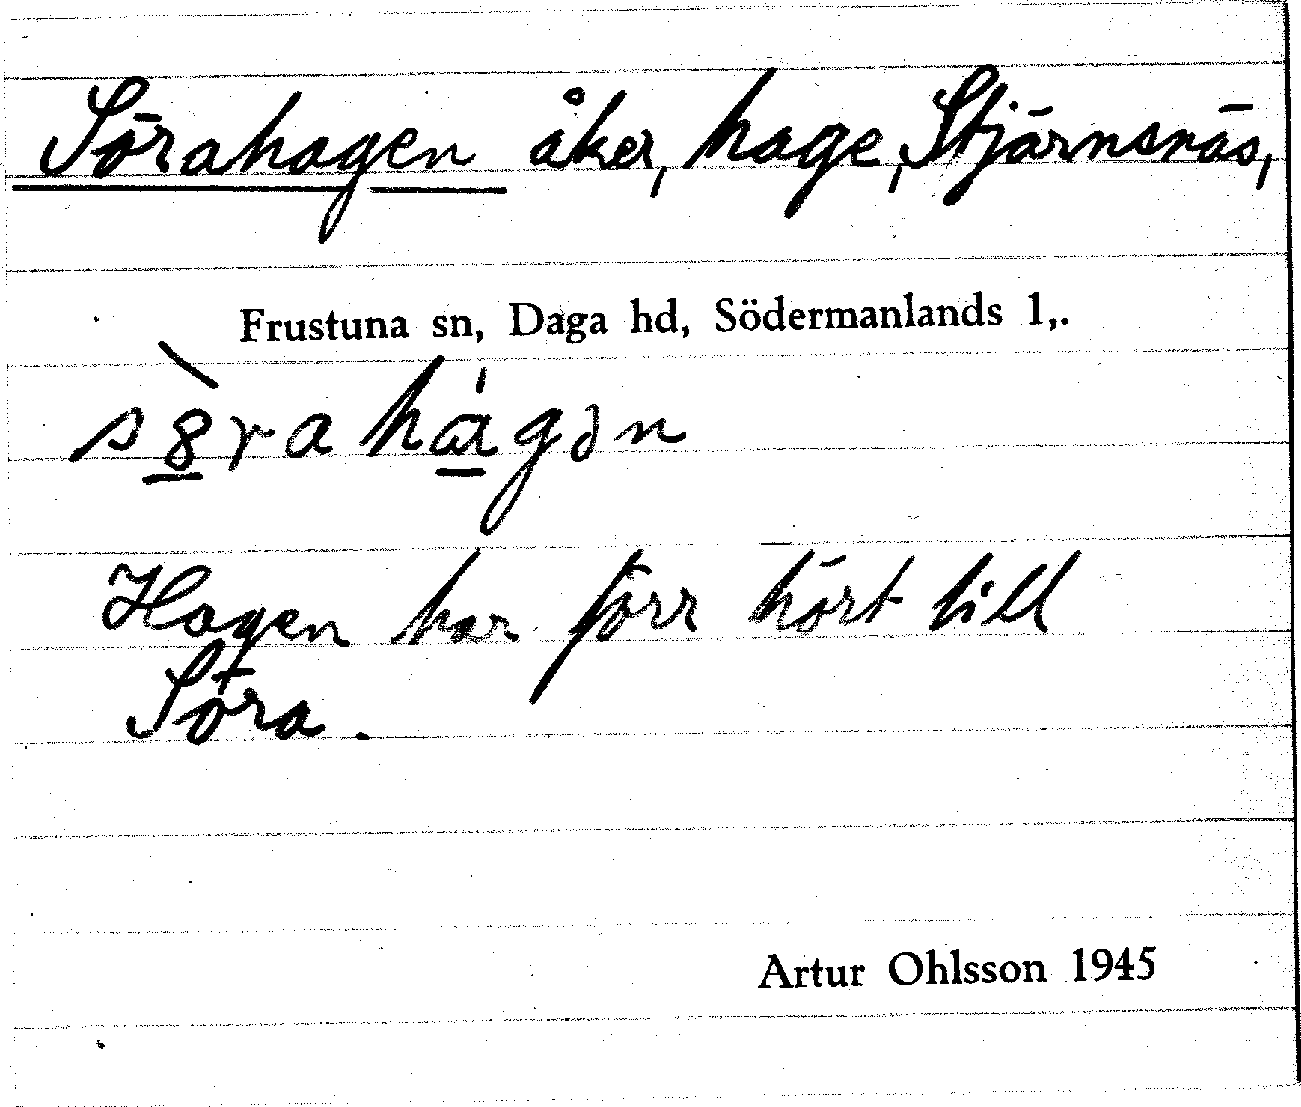 Sörahagen åker, hage, Stjärnsnäs,
Frustuna sn, Daga hd, Södermanlands l,.
Hagen har förr hört till
Söra.
Artur Ohlsson 1945